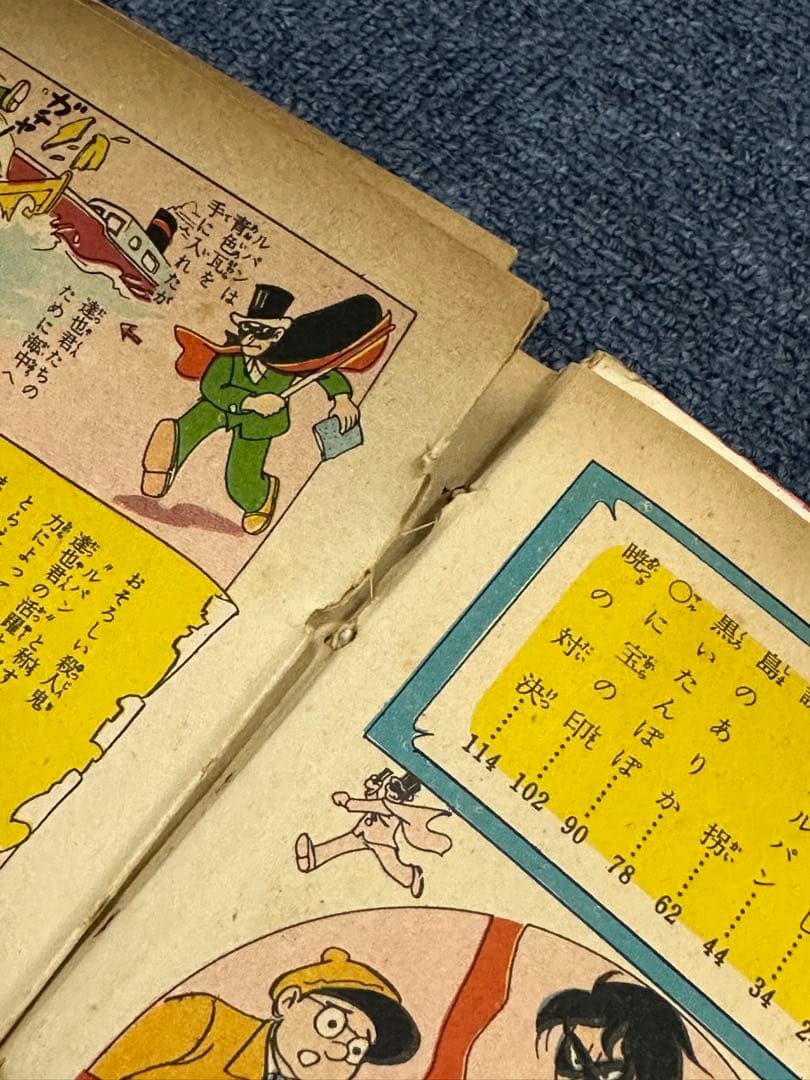 ガチャ
ルパンは
青色瓦を
手に入れたが
達也君たちの
ために海中へ
おそろしい殺人鬼
“ルパン”と称す
達也君の活躍
力によって
ルパン
拐
島のありか
黒いたんぽぽ
○に宝の印
暁の対決
114 102 90 78 62 44 34